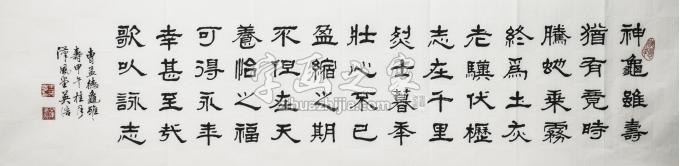 神龜雖壽
猶有竟時
騰虵乘霧
終爲土灰
老驥伏櫪
志在千里
烈士暮年
壯心不已
盈縮之期
不但在天
養怡之福
可得永年
幸甚至哉
歌以詠志
曹孟德龜雖
壽甲午桂月
漢風堂英浩